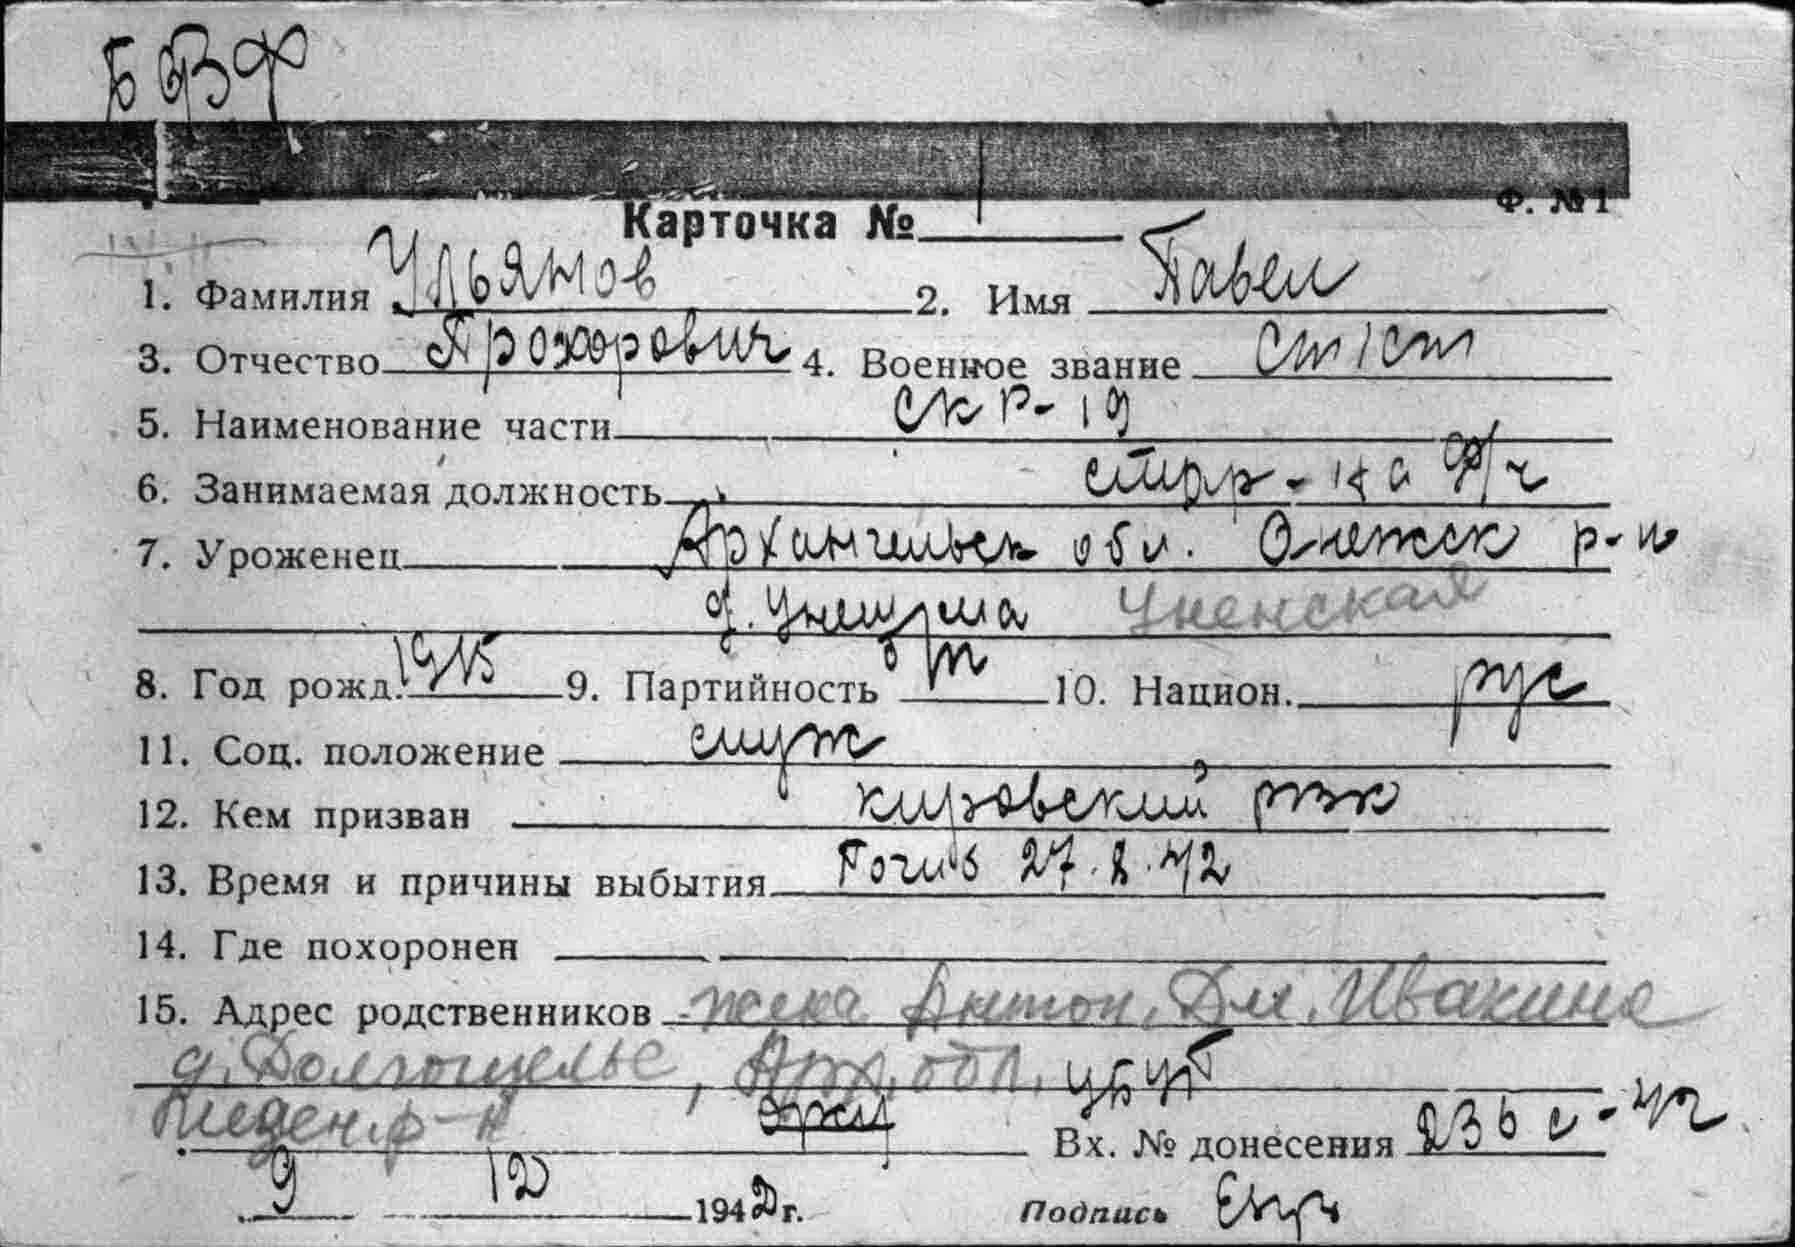 БВФ
Ф. №1
Карточка №
1. Фамилия Ульянов 2. Имя Павел
3. Отчество Прохорович 4. Военное звание ст 1 ст
5. Наименование части СКР-19
6. Занимаемая должность
7. Уроженец Архангельск обл. Онежск р-н
д. Унежма Уненская
8. Год рожд. 1915 9. Партийность б/п 10. Национ. рус
11. Соц. положение служ
12. Кем призван Кировский рвк
13. Время и причины выбытия Погиб 27.8.42
14. Где похоронен
15. Адрес родственников жена Антон. Дм. Ивакина
д. Долгощелье, Арх. обл.
Мезен. р-н
Вх. № донесения 236 с-42
9 12 1942 г. Подпись